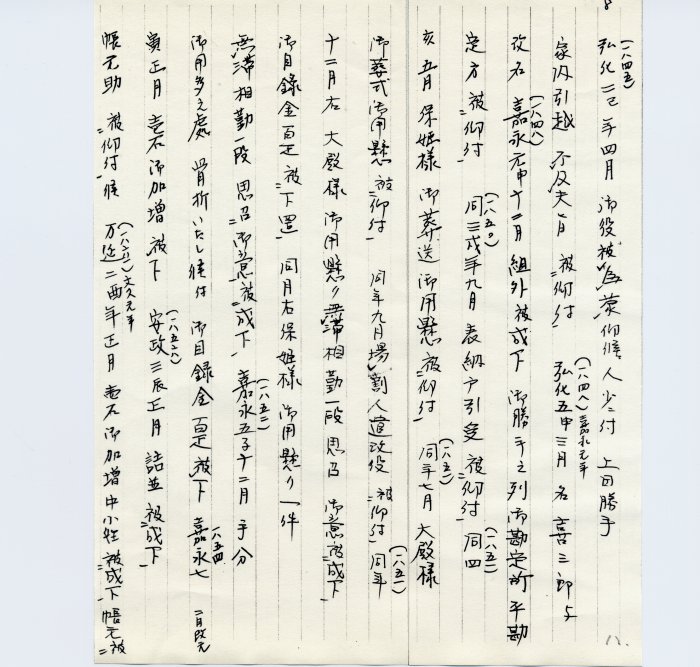 (一八四五)
弘化二巳年四月 御役被為蒙仰候 人少ニ付 上田勝手
家内引越 不及夫ゟ 被仰付 (一八四八)嘉永元年 弘化五申三月 名 喜三郎与
改名 (一八四八)嘉永元申十二月 組外被成下 御勝手之列 御勘定所 平勘
定方 被仰付 (一八五〇)同三戌年九月 表納戸引受 被仰付 (一八五一)同四
亥五月 保姫様 御葬送 御用懸 被仰付 (一八五一)同年七月 大殿様
御葬式御用懸 被仰付 同年九月 場割人道改役 被仰付 (一八五一)同年
十二月 右 大殿様 御用懸り 無滞相勤一段 思召 御意被成下
御目録金百疋 被下置 同月 右保姫様 御用懸り一件
無滞相勤一段 思召 御意被成下 (一八五二)嘉永五子十二月 手分
御用多之処 骨折いたし候付 御目録金百疋 被下 一八五四 嘉永七 二月改元
寅正月 壱石御加増 被下 (一八五六)安政三辰正月 詰並 被成下
帳元助 被仰付候 (一八六一)文久元年 万延二酉年正月 壱石御加増 中小姓 被成下 帳元被